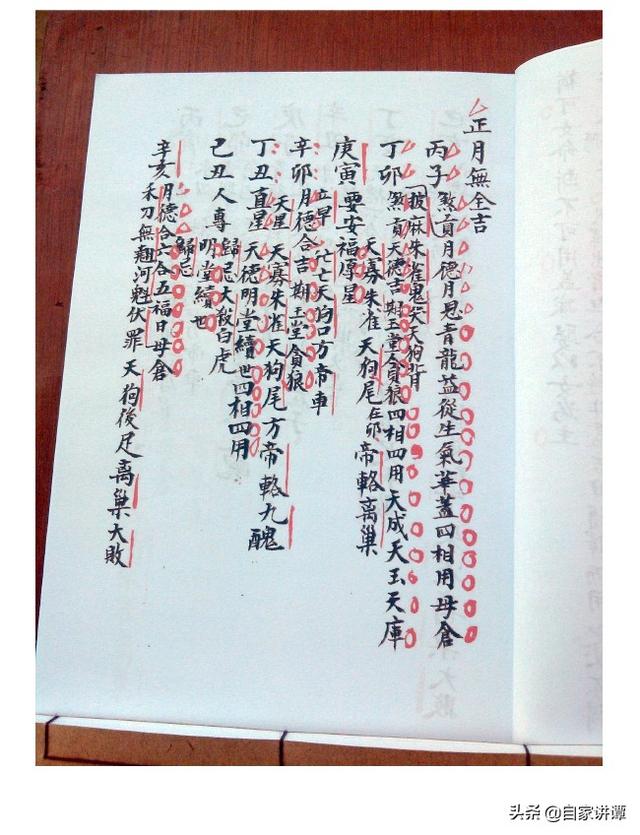 正月無全吉
丙子煞貢月德月恩青龍益從生氣華蓋四相用母倉
披麻朱雀鬼哭天狗背
丁卯煞貢天德吉期玉堂貪狼四相四用天成天玉天庫
天寡朱雀天狗尾卯帝輅离巢
庚寅要安福厚星
立早亡天狗口方帝車
辛卯月德合吉期玉堂貪狼
天星天寡朱雀天狗尾方帝輅九醜
丁丑直星天德明堂續世四相四用
歸忌大殺白虎
己丑人專明堂續世
歸忌
辛亥月德合六合五福日母倉
禾刀無翹河魁伏罪天狗後足离巢大敗
头条 @自家讲谭